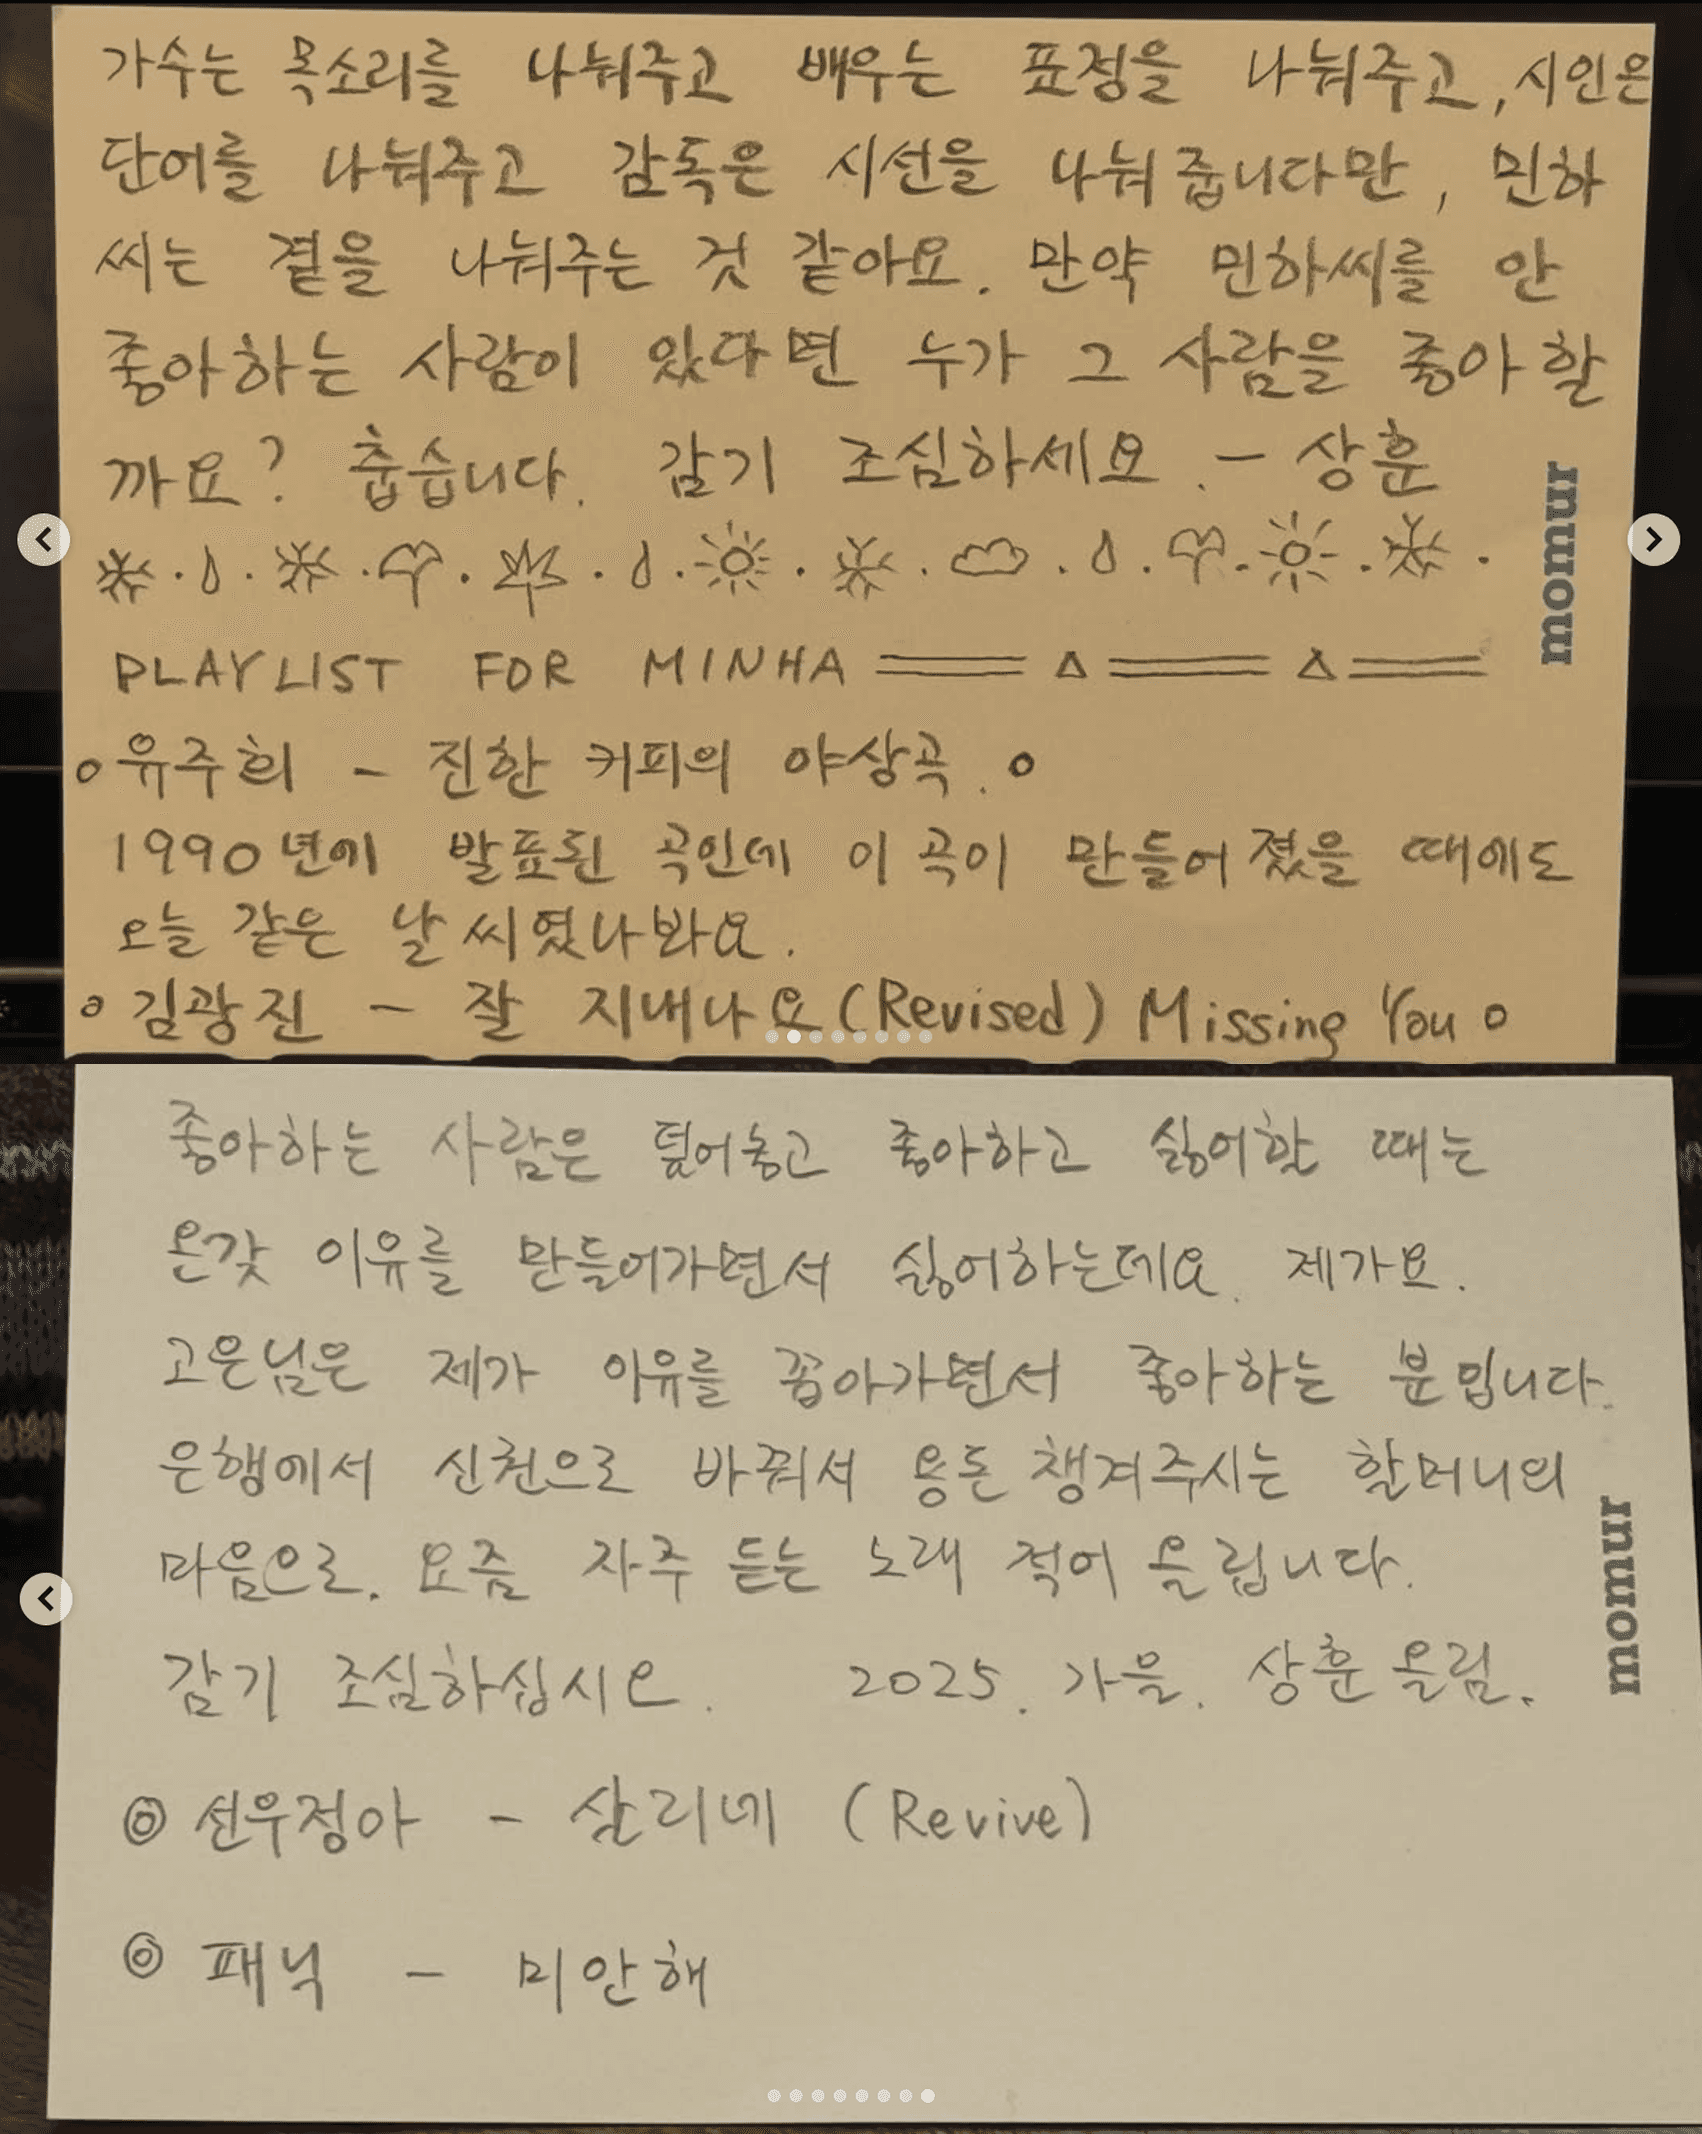 가수는 목소리를 나눠주고 배우는 표정을 나눠주고, 시인은
단어를 나눠주고 감독은 시선을 나눠 줍니다만, 민하
씨는 곁을 나눠주는 것 같아요. 만약 민하씨를 안
좋아하는 사람이 있다면 누가 그 사람을 좋아할
까요? 춥습니다. 감기 조심하세요. - 상훈
momur
PLAYLIST FOR MINHA
유주희 - 진한 커피의 야상곡.
1990년에 발표된 곡인데 이 곡이 만들어졌을 때에도
오늘 같은 날씨였나봐요.
김광진 - 잘 지내나요 (Revised) Missing You
좋아하는 사람은 덮어놓고 좋아하고 싫어할 때는
온갖 이유를 만들어가면서 싫어하는데요. 제가요.
고은님은 제가 이유를 꼽아가면서 좋아하는 분입니다.
은행에서 신권으로 바꿔서 용돈 챙겨주시는 할머니의
마음으로. 요즘 자주 듣는 노래 적어 올립니다.
감기 조심하십시오. 2025. 가을. 상훈 올림.
momur
선우정아 - 살리네 (Revive)
패닉 - 미안해